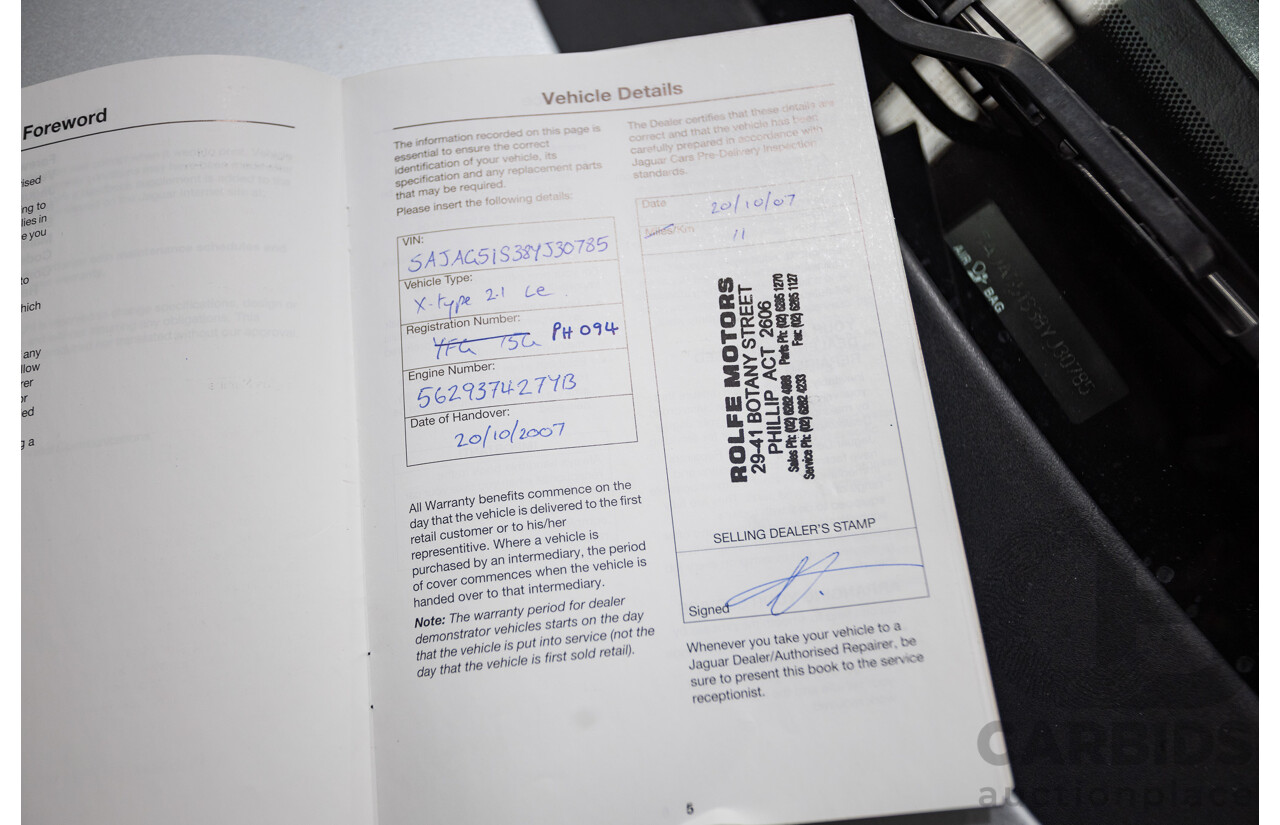 Foreword
ised
ng to
lies in
e you
to
hich
any
llow
rer
or
ed
g a
Vehicle Details
The information recorded on this page is
essential to ensure the correct
identification of your vehicle, its
specification and any replacement parts
that may be required.
Please insert the following details:
VIN:
SAJAC51S38YJ30785
Vehicle Type:
X-type 2.1 Le
Registration Number:
PH 094
Engine Number:
5629374274B
Date of Handover:
20/10/2007
All Warranty benefits commence on the
day that the vehicle is delivered to the first
retail customer or to his/her
representitive. Where a vehicle is
purchased by an intermediary, the period
of cover commences when the vehicle is
handed over to that intermediary.
Note: The warranty period for dealer
demonstrator vehicles starts on the day
that the vehicle is put into service (not the
day that the vehicle is first sold retail).
The Dealer certifies that these details are
correct and that the vehicle has been
carefully prepared in accordance with
Jaguar Cars Pre-Delivery Inspection
standards.
Date 20/10/07
Miles/Km 11
ROLFE MOTORS
29-41 BOTANY STREET
PHILLIP ACT 2606
Sales Ph: (02) 6282 4888 Parts Ph: (02) 6285 1270
Service Ph: (02) 6282 4233 Fax: (02) 6285 1127
SELLING DEALER'S STAMP
Signed
Whenever you take your vehicle to a
Jaguar Dealer/Authorised Repairer, be
sure to present this book to the service
receptionist.
5
AIR BAG
YJ30785
CARBIDS
auctionplace